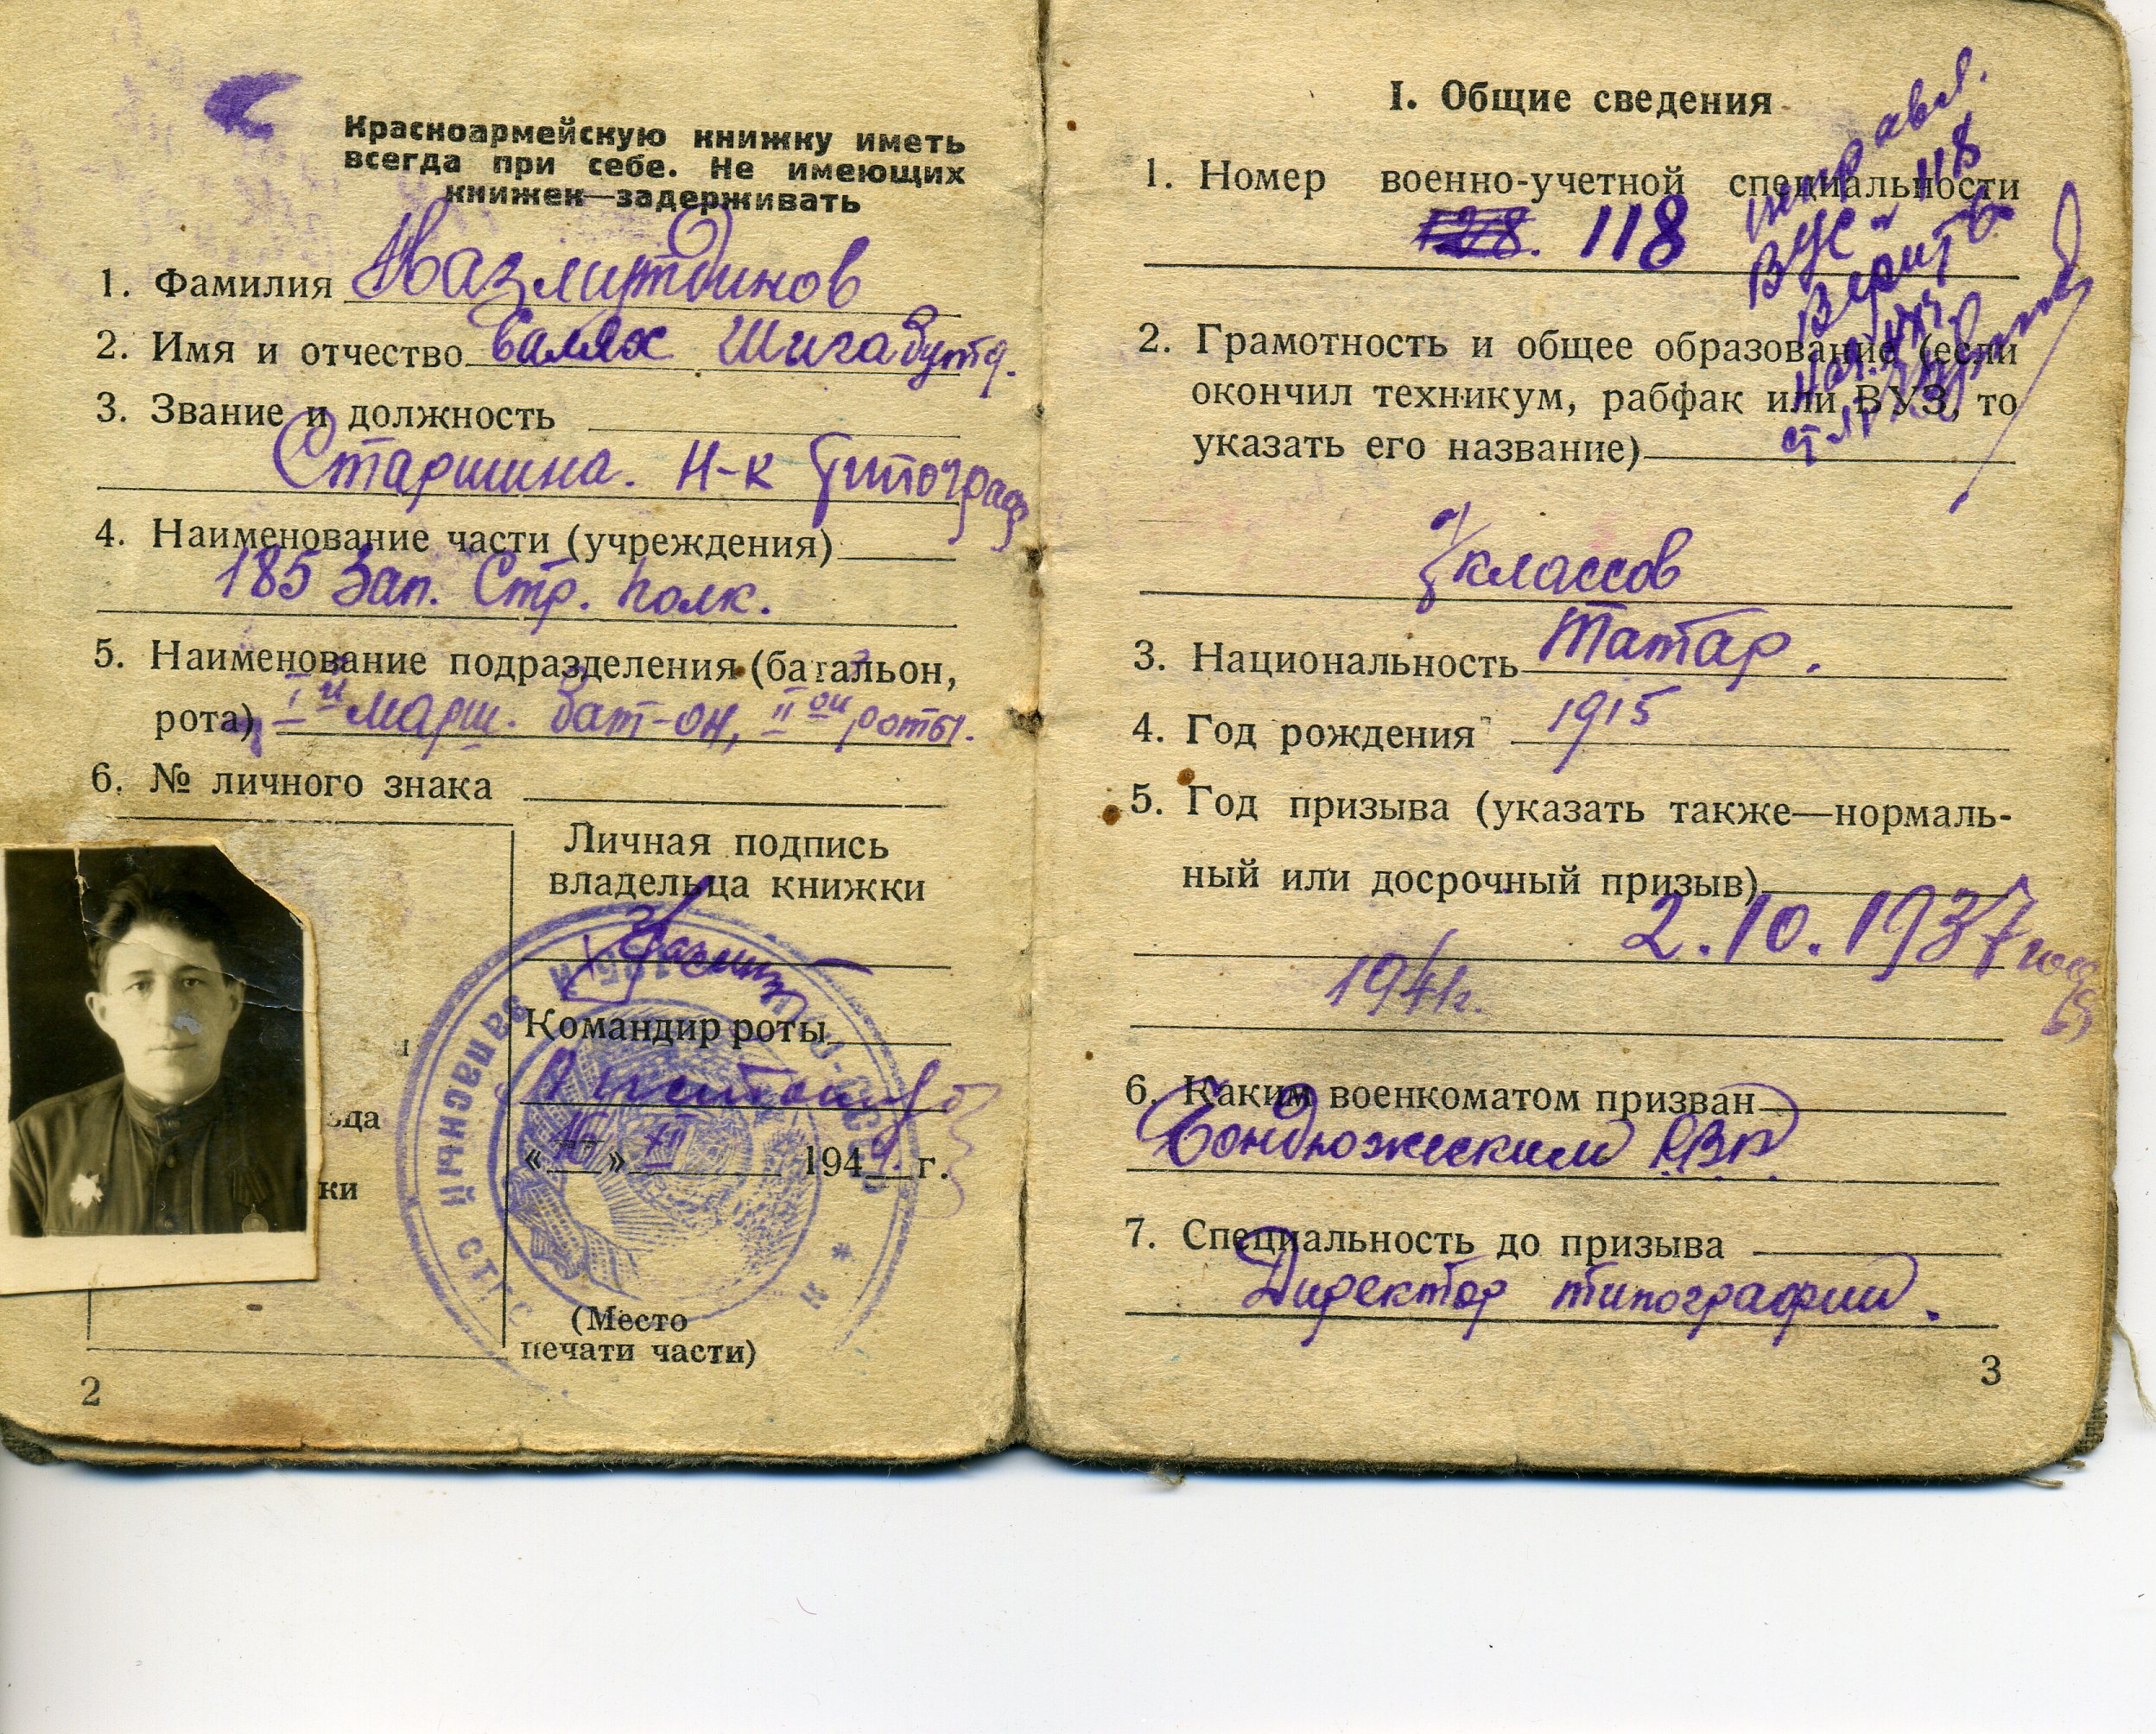 Красноармейскую книжку иметь
всегда при себе. Не имеющих
книжек—задерживать
1. Фамилия Назмутдинов
2. Имя и отчество Салях Шигабутд.
3. Звание и должность
Старшина. Н-к типограф
4. Наименование части (учреждения)
185 Зап. Стр. полк.
5. Наименование подразделения (батальон,
рота) I й марш. бат-он, II ой роты.
6. № личного знака
Личная подпись
владельца книжки
Командир роты
«16» XII 194 г.
(Место
печати части)
ЗАПАСНЫЙ СТРЕ
да
ки
2
I. Общие сведения
1. Номер военно-учетной специальности
128. 118
исправл.
ВУС - 118
Верить
2. Грамотность и общее образование (если
окончил техникум, рабфак или ВУЗ, то
указать его название)
7 классов
3. Национальность Татар.
4. Год рождения 1915
5. Год призыва (указать также—нормаль-
ный или досрочный призыв)
2.10.1937 года
1941г.
6. Каким военкоматом призван
Бондюжским РВК
7. Специальность до призыва
Директор типографии.
3